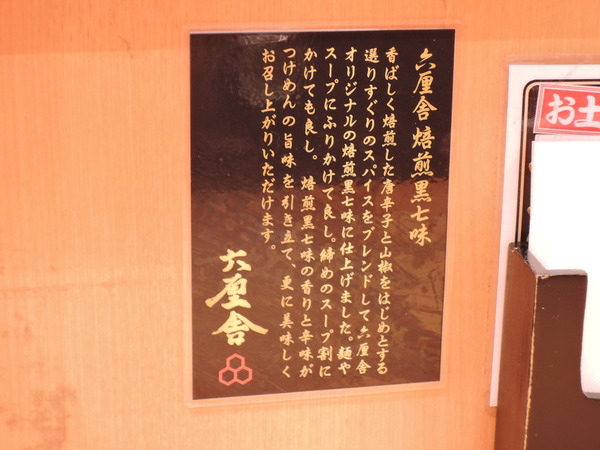 六厘舎 焙煎黒七味
香ばしく焙煎した唐辛子と山椒をはじめとする
選りすぐりのスパイスをブレンドして六厘舎
オリジナルの焙煎黒七味に仕上げました。麺や
スープにふりかけて良し。締めのスープ割に
かけても良し。焙煎黒七味の香りと辛味が
つけめんの旨味を引き立て、更に美味しく
お召し上がりいただけます。
六厘舎
お土